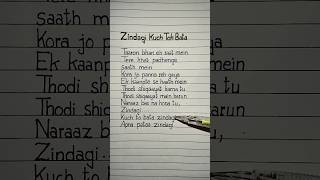 Zindagi Kuch Toh Bata
Taaron bhari ek raat mein
Tere khat padhenge
saath mein
Kora jo panna reh gaya
Ek kaanpte se haath mein
Thodi shiqayat karna tu,
Thodi shiqayat mein karun
Naraaz bas na hona tu,
Zindagi...
Kuch to bata zindagi
Apna pataa zindagi